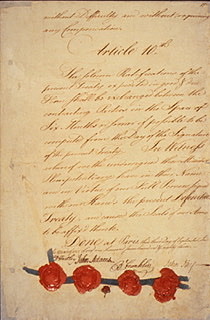 without Difficulty and without requiring
any Compensation.
Article 10th
The solemn Ratifications of the
present Treaty
shall be exchanged between the
contracting Parties in the Space of
Six Months or sooner if possible to be
computed from the Day of the Signature
of the present Treaty. In Witness
whereof we the undersigned their Ministers
Plenipotentiary have in their Name
and in Virtue of our Full Powers
the present Definitive
Treaty, and caused the Seals of our Arms
to be affixed thereto.
Done at Paris, this third Day of September
D Hartley John Adams B Franklin John Jay